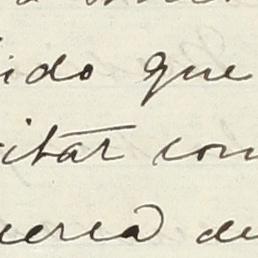 ido que
itar con
uerca de